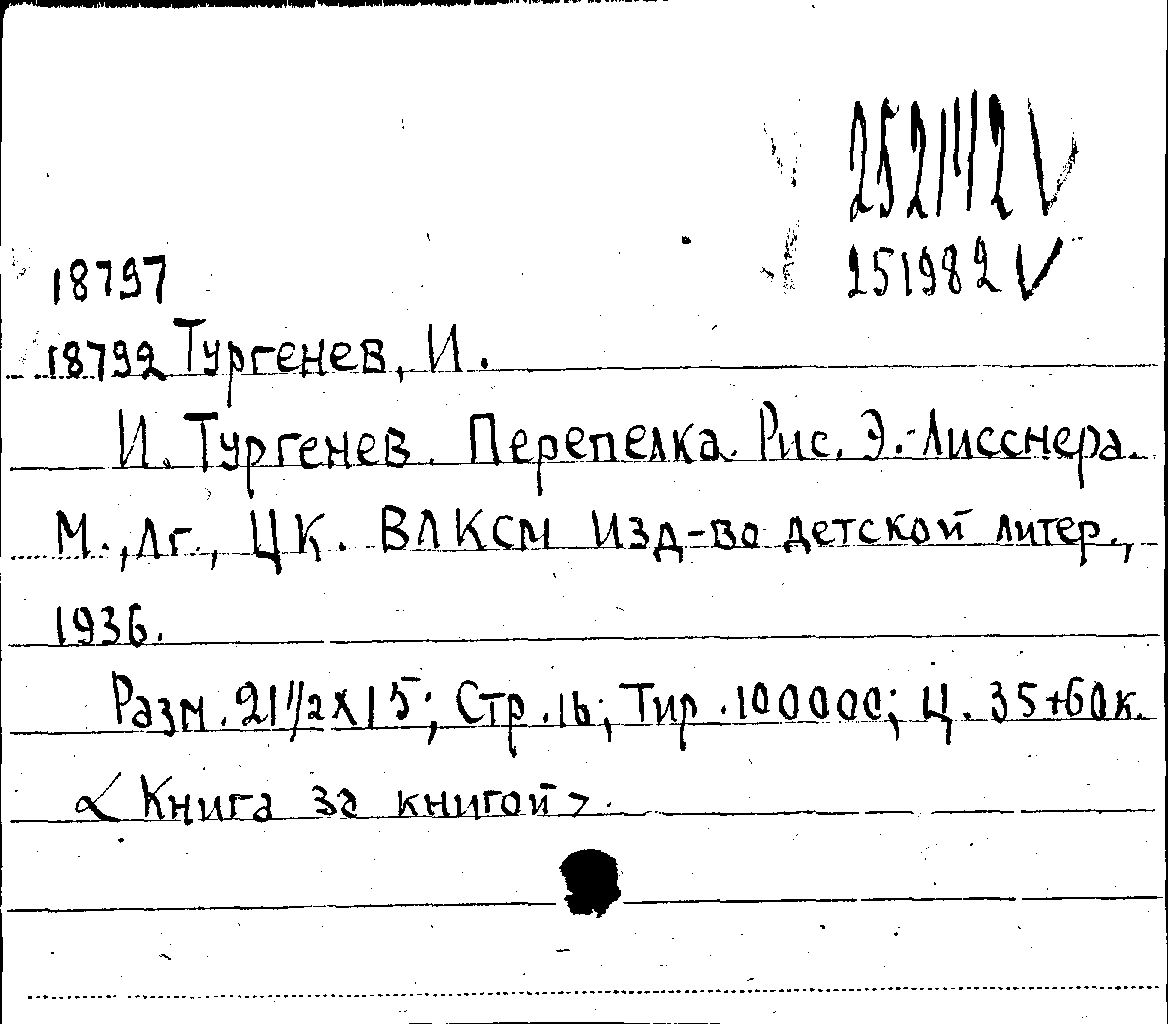 251982 V
18797
18792 Тургенев, И.
И. Тургенев. Перепелка. Рис. Э. Лисснера.
М., Лг., ЦК. ВЛКСМ Изд-во детской литер.,
1936.
Разм. 21 1/2 x 15; Стр. 16; Тир. 100000; Ц. 35+60к.
<Книга за книгой>.